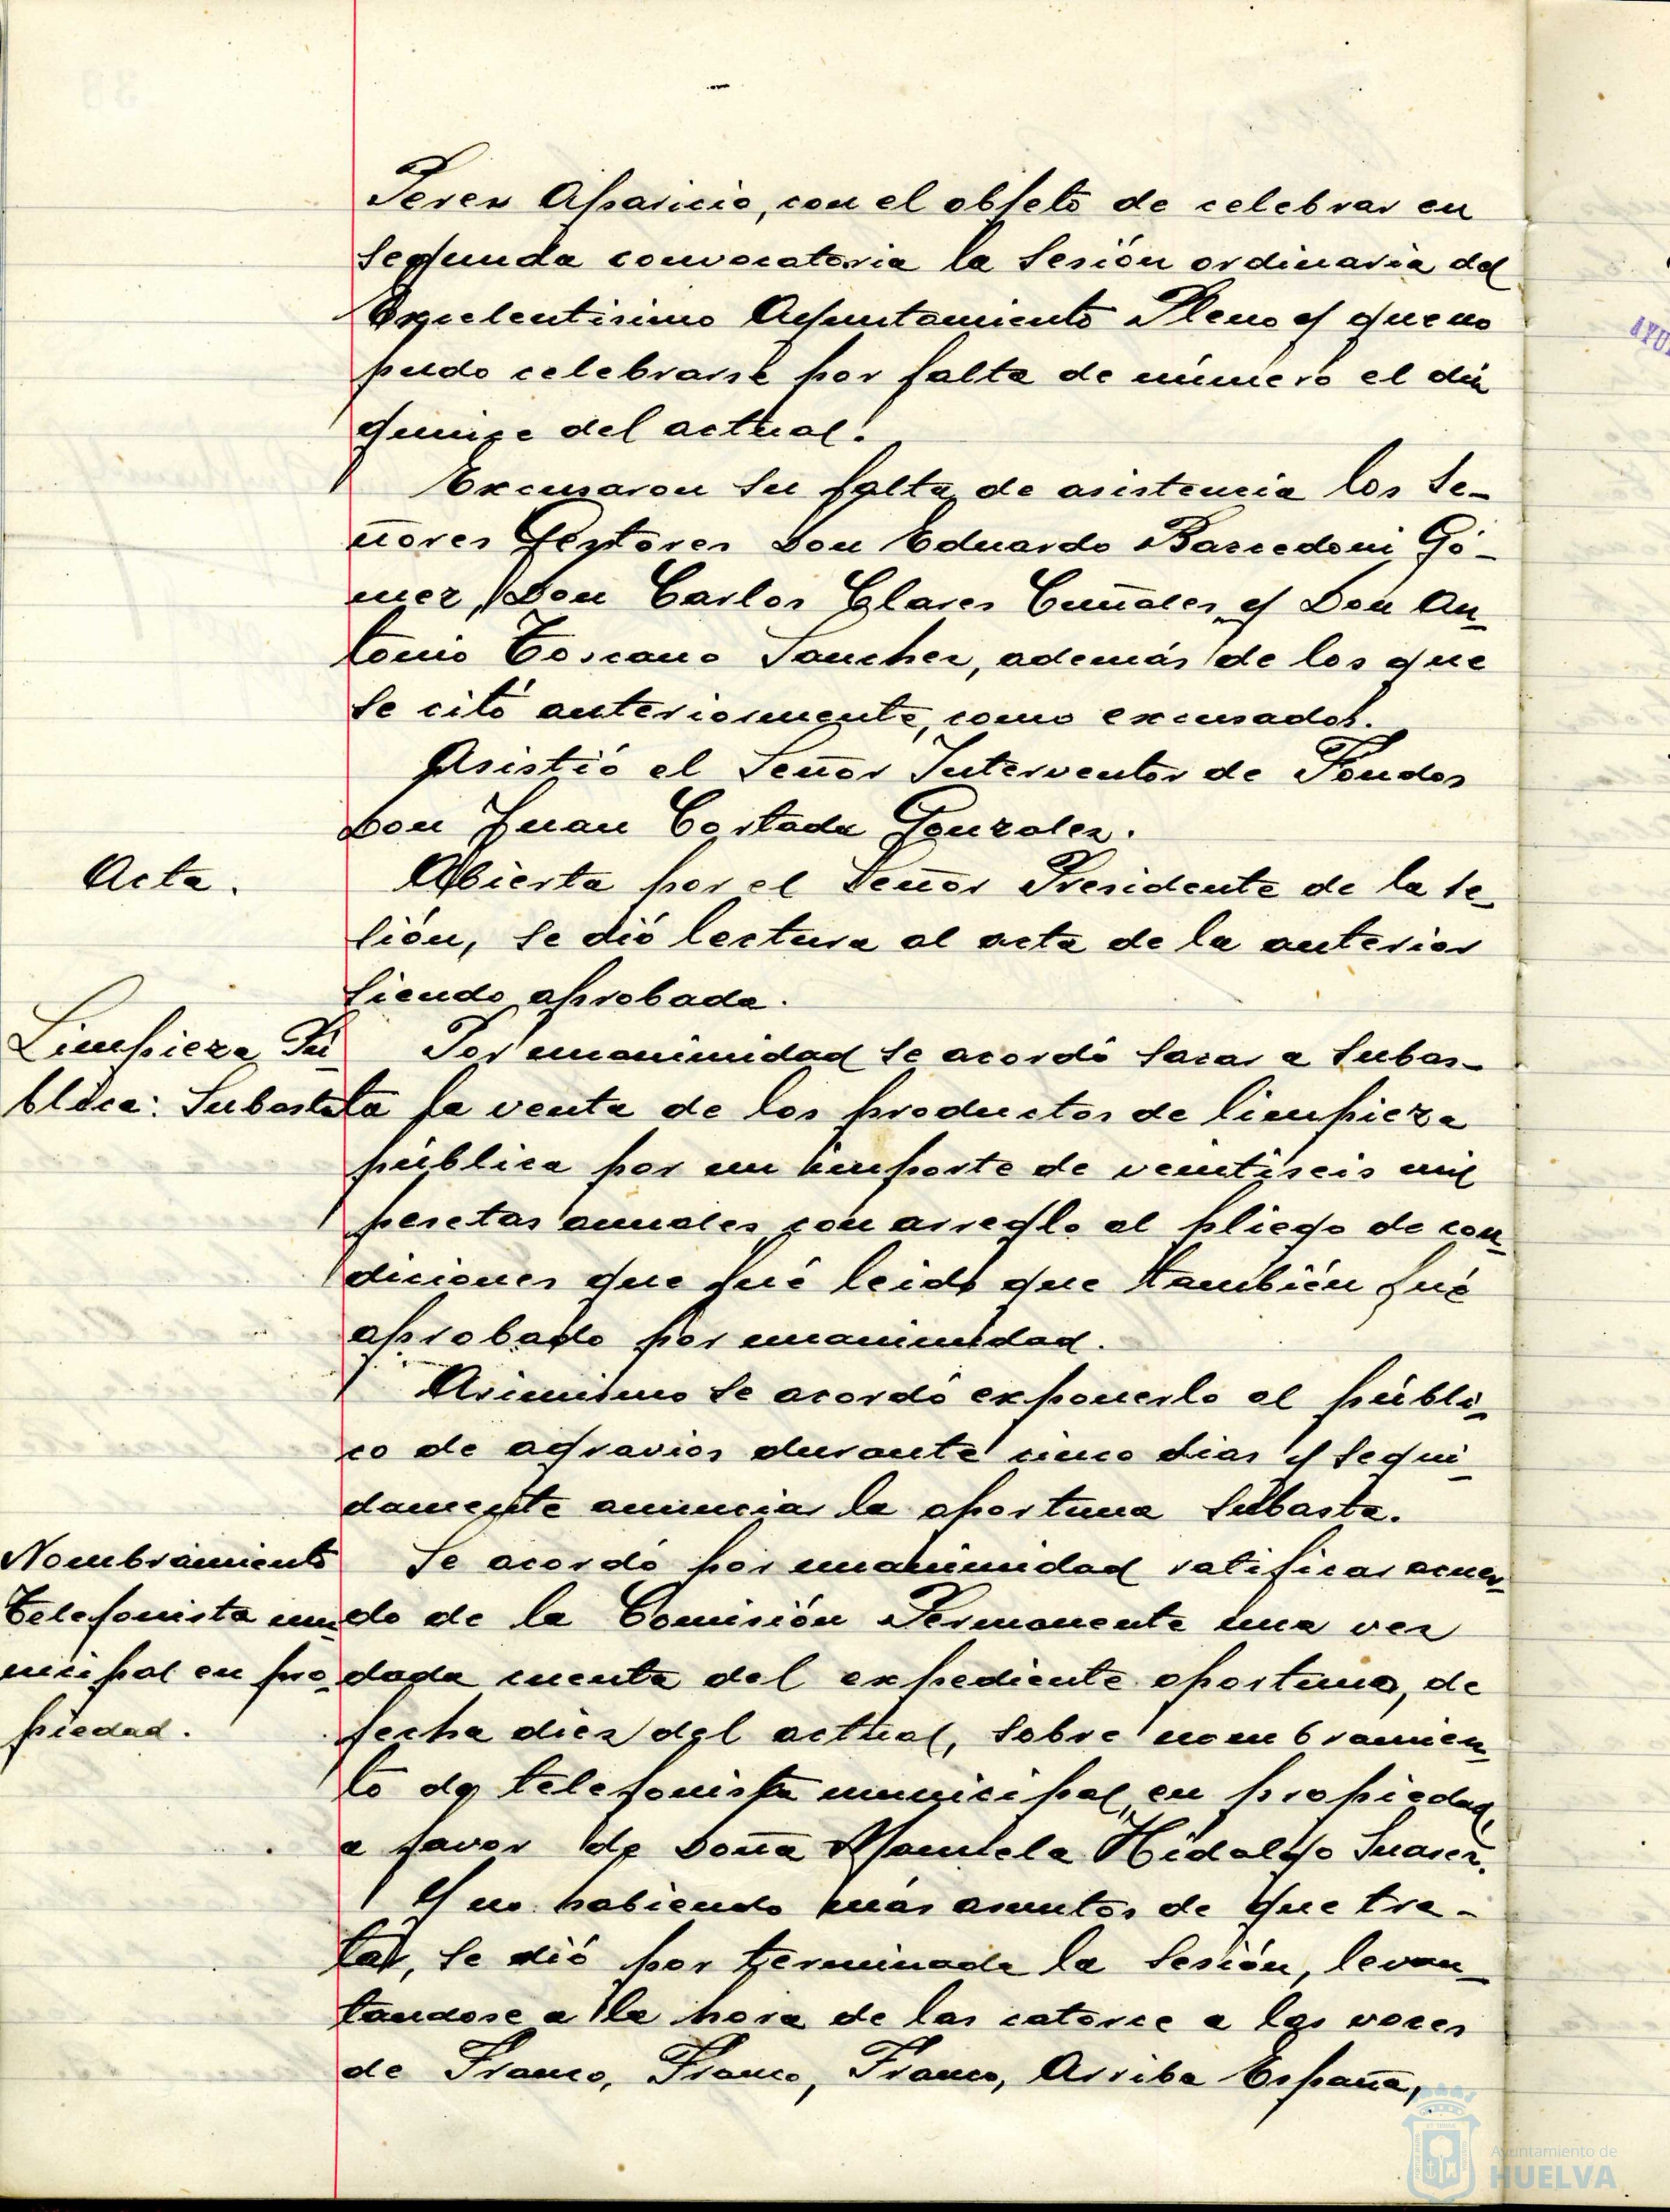 Perez Aparicio, con el objeto de celebrar en
segunda convocatoria la Sesión ordinaria del
Excelentisimo Ayuntamiento Pleno y que no
pudo celebrarse por falta de número el dia
quince del actual.
Excusaron su falta de asistencia los Se-
ñores Gestores Don Eduardo Gó-
mez, Don Carlos Clares Cuñales y Don An-
tonio Toscano Sanchez, además de los que
se citó anteriormente, como excusados.
Asistió el Señor Interventor de Fondos
Don Juan Cortada Gonzalez.
Acta.
Abierta por el Señor Presidente de la se-
sión, se dió lectura al acta de la anterior
siendo aprobada.
Limpieza Pú
blica: Subasta
Por unanimidad se acordó sacar a subas-
ta la venta de los productos de limpieza
pública por un importe de veintiseis mil
pesetas anuales con arreglo al pliego de con-
diciones que fué leido que también fué
aprobado por unanimidad.
Asimismo se acordó exponerlo al públi-
co de agravios durante cinco dias y segui-
damente anunciar la oportuna subasta.
Nombramiento
telefonista mu-
nicipal en pro-
piedad.
Se acordó por unanimidad ratificar acuer-
do de la Comisión Permanente una vez
dada cuenta del expediente oportuno, de
fecha diez del actual, sobre nombramien-
to de telefonista municipal, en propiedad,
a favor de Doña Manuela Hidalgo Suarez.
Y no habiendo más asuntos de que tra-
tar, se dió por terminada la sesión, levan-
tandose a la hora de las catorce a las voces
de Franco, Franco, Franco, Arriba España,
Ayuntamiento de
HUELVA